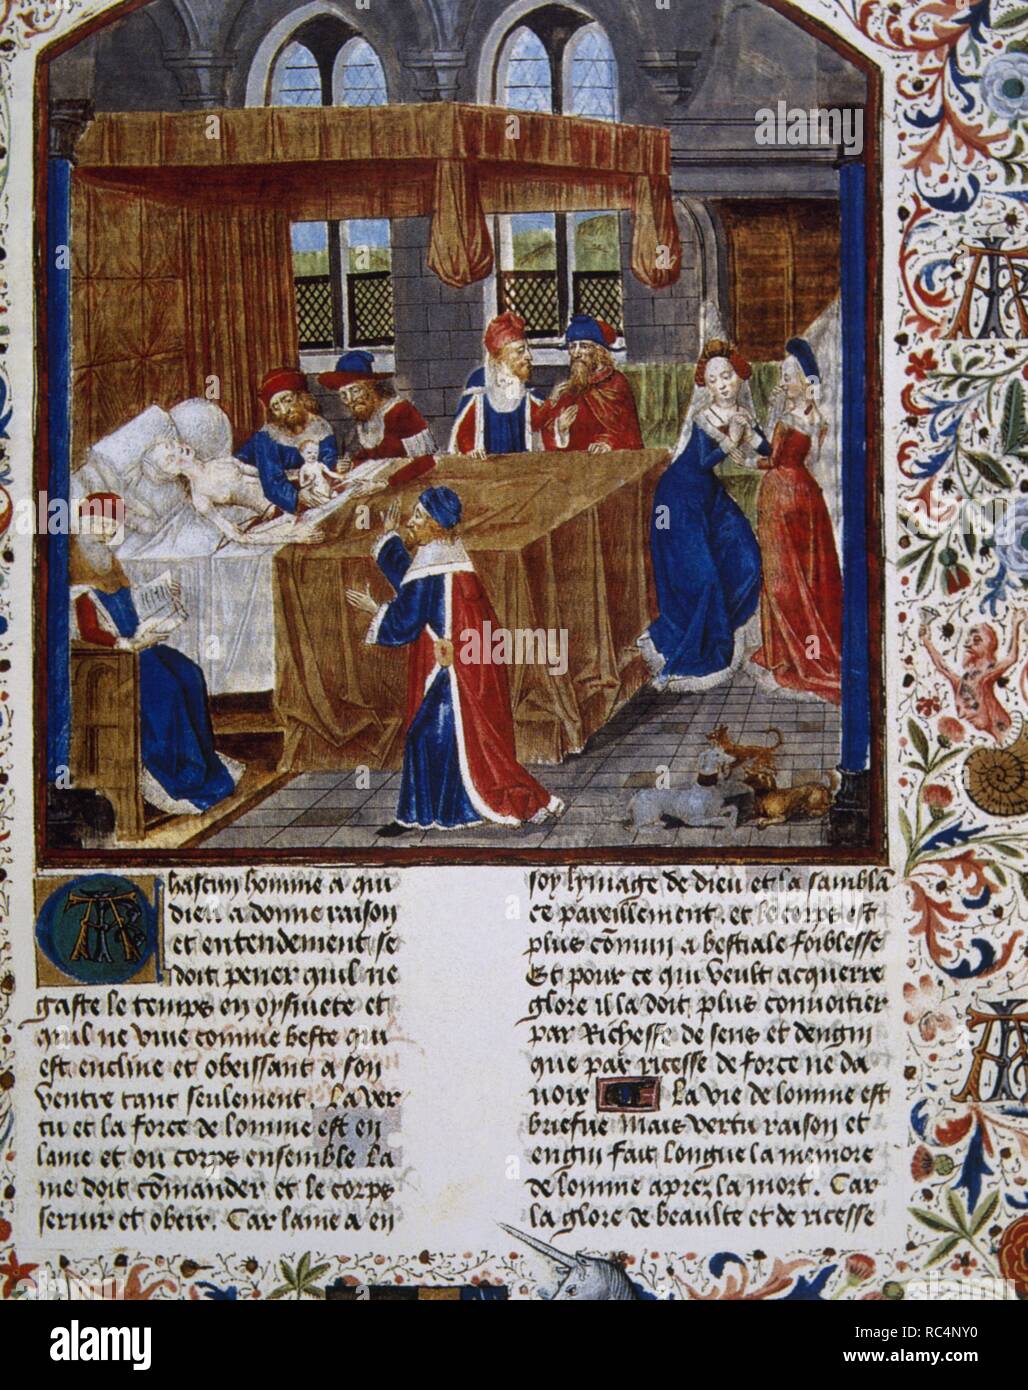 Chascun homme a qui
dieu a donne raison
et entendement se
doit pener quil ne
gaste le temps en oysiuete et
quil ne viue comme beste qui
est encline et obeissant a son
ventre tant seulement. La ver
tu et la force de lomme est en
lame et ou corps ensemble La
me doit cōmander et le corps
seruir et obeir. Car lame a en
soy lymage de dieu et la samblā
ce pareillement. et le corps est
plus cōmun a bestiale foiblesse
Et pour ce qui veult acquerre
glore il la doit plus conuoitier
par Richesse de sens et dengin
que par ricesse de force ne da
uoir La vie de lomme est
briefue mais vertu raison et
engin fait longue la memore
de lomme aprez la mort. Car
la glore de beaulte et de ricesse
alamy
alamy
alamy
Image ID: RC4NY0
www.alamy.com